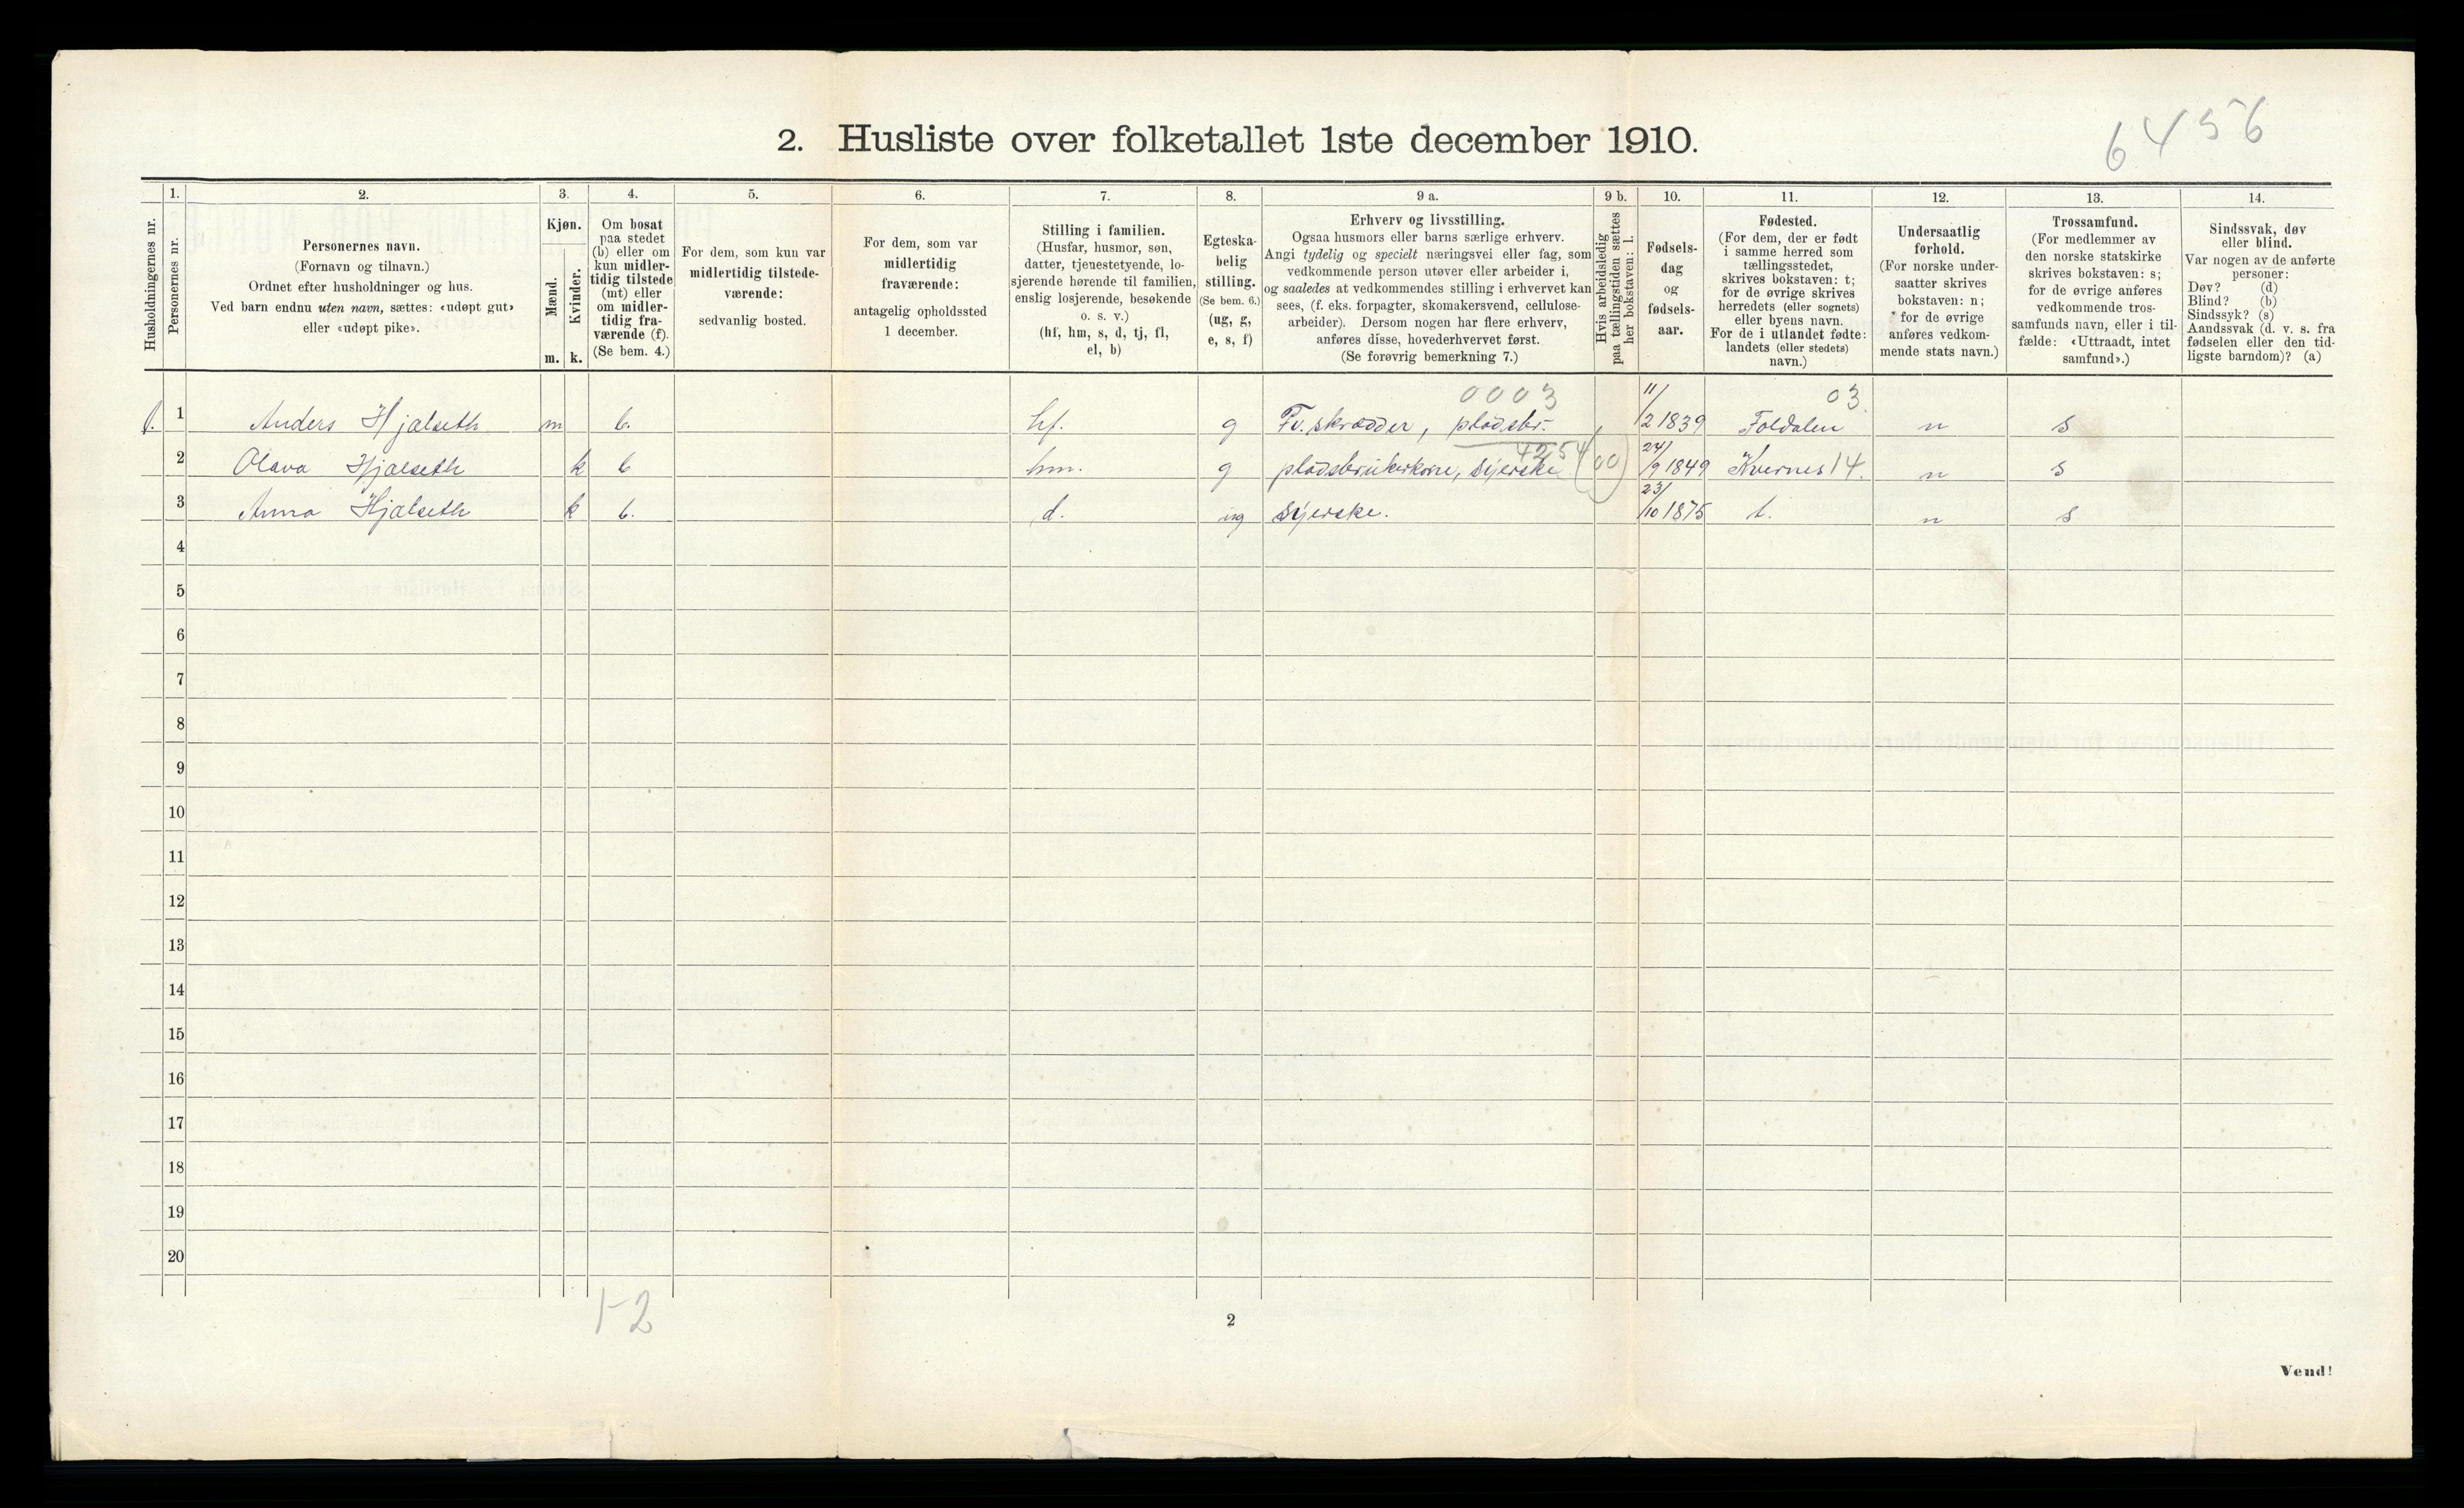 6456
2. Husliste over folketallet 1ste december 1910.
1. 2. 3. 4. 5. 6. 7. 8. 9 a. 9 b. 10. 11. 12. 13. 14.
Husholdningernes nr.
Personernes nr.
Personernes navn.
(Fornavn og tilnavn.)
Ordnet efter husholdninger og hus.
Ved barn endnu uten navn, sættes: «udøpt gut»
eller «udøpt pike».
Kjøn.
Mænd.
Kvinder.
m. k.
Om bosat
paa stedet
(b) eller om
kun midler-
tidig tilstede
(mt) eller
om midler-
tidig fra-
værende (f).
(Se bem. 4.)
For dem, som kun var
midlertidig tilstede-
værende:
sedvanlig bosted.
For dem, som var
midlertidig
fraværende:
antagelig opholdssted
1 december.
Stilling i familien.
(Husfar, husmor, søn,
datter, tjenestetyende, lo-
sjerende hørende til familien,
enslig losjerende, besøkende
o. s. v.)
(hf, hm, s, d, tj, fl,
el, b)
Egteska-
belig
stilling.
(Se bem. 6.)
(ug, g,
e, s, f)
Erhverv og livsstilling.
Ogsaa husmors eller barns særlige erhverv.
Angi tydelig og specielt næringsvei eller fag, som
vedkommende person utøver eller arbeider i,
og saaledes at vedkommendes stilling i erhvervet kan
sees, (f. eks. forpagter, skomakersvend, cellulose-
arbeider). Dersom nogen har flere erhverv,
anføres disse, hovederhvervet først.
(Se forøvrig bemerkning 7.)
Hvis arbeidsledig
paa tællingstiden sættes
her bokstaven: l.
Fødsels-
dag
og
fødsels-
aar.
Fødested.
(For dem, der er født
i samme herred som
tællingsstedet,
skrives bokstaven: t;
for de øvrige skrives
herredets (eller sognets)
eller byens navn.
For de i utlandet fødte:
landets (eller stedets)
navn.)
Undersaatlig
forhold.
(For norske under-
saatter skrives
bokstaven: n;
for de øvrige
anføres vedkom-
mende stats navn.)
Trossamfund.
(For medlemmer av
den norske statskirke
skrives bokstaven: s;
for de øvrige anføres
vedkommende tros-
samfunds navn, eller i til-
fælde: «Uttraadt, intet
samfund».)
Sindssvak, døv
eller blind.
Var nogen av de anførte
personer:
Døv? (d)
Blind? (b)
Sindssyk? (s)
Aandssvak (d. v. s. fra
fødselen eller den tid-
ligste barndom)? (a)
0003 03
1. 1 Anders Hjalseth m b. hf. g Fv. skrædder, pladsbr. 11/2 1839 Foldalen n s
4254 (00)
2 Olava Hjalseth k b hm. g pladsbrukerkone, syerske 24/9 1849 Kvernes 14. n s
3 Anna Hjalseth k b. d. ug syerske. 23/10 1875 t. n s
4
5
6
7
8
9
10
11
12
13
14
15
16
17
18
19
20
1-2
2
Vend!